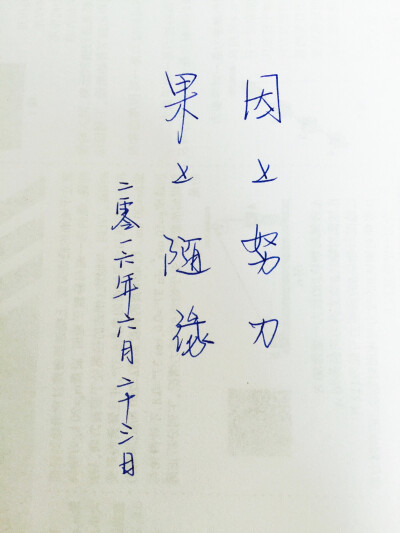 因上努力
果上随缘
二零一六年六月二十三日